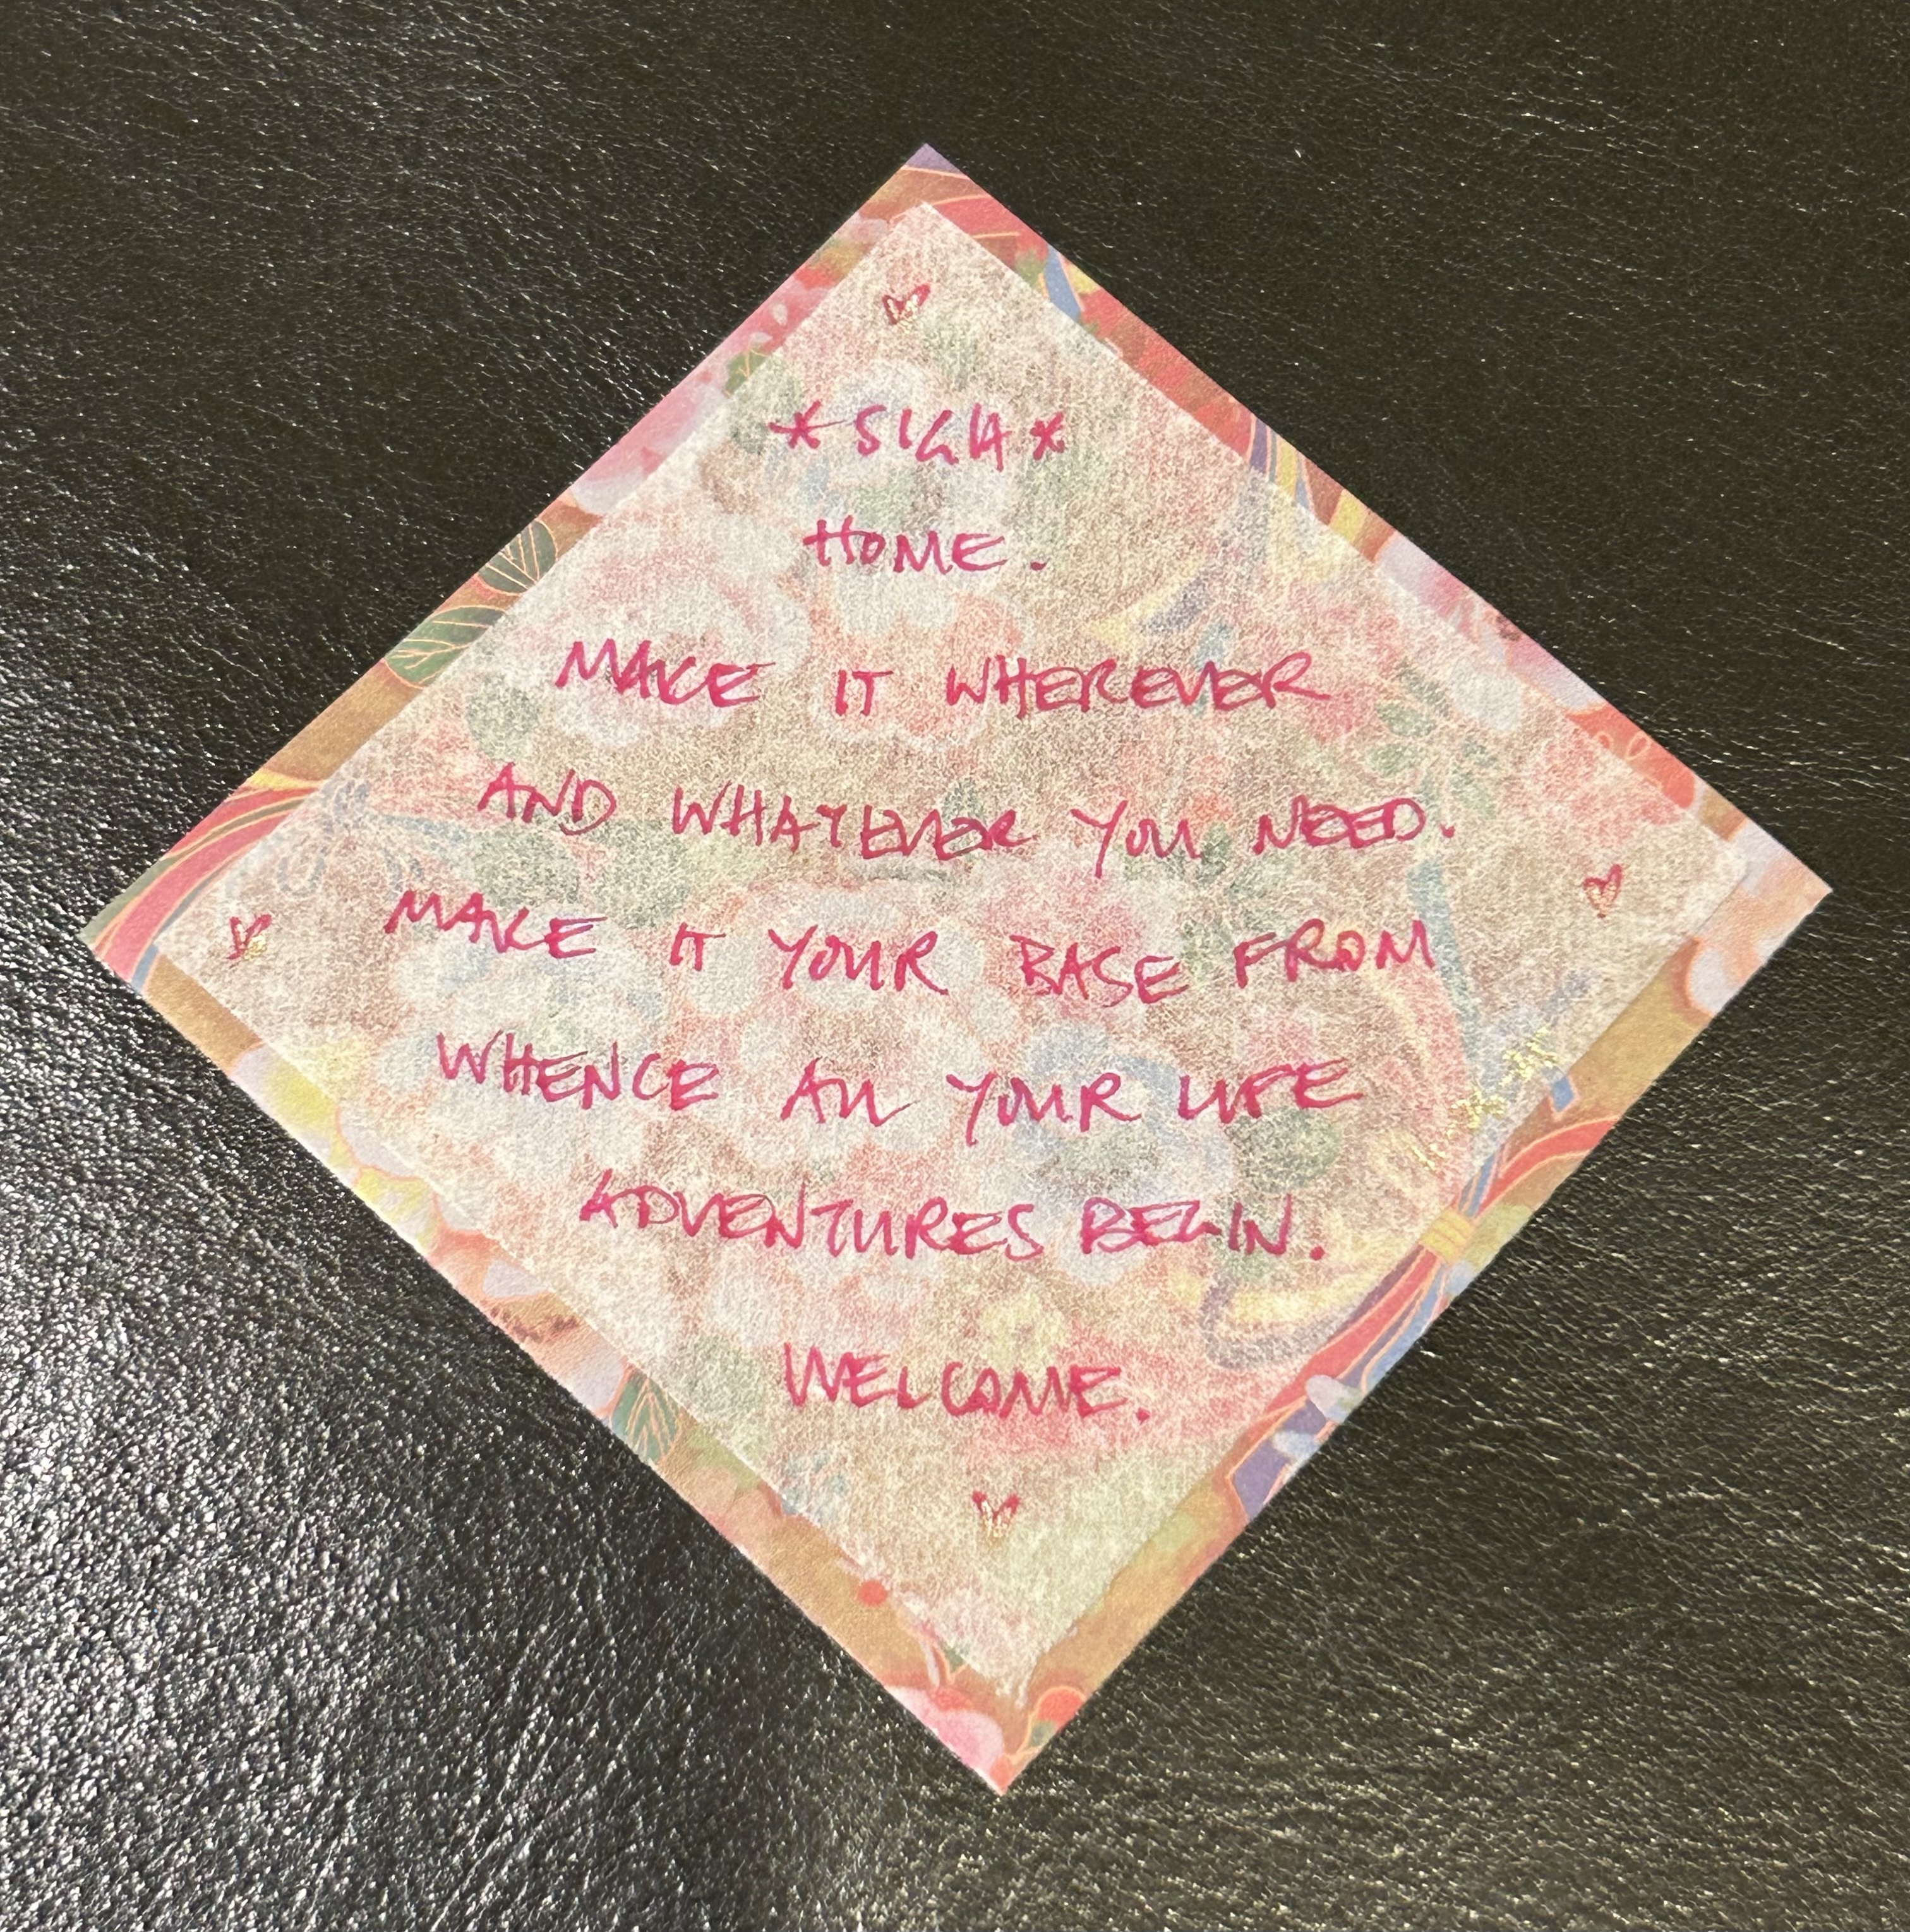 *SIGH*
HOME.
MAKE IT WHEREVER
AND WHATEVER YOU NEED.
MAKE IT YOUR BASE FROM
WHENCE ALL YOUR LIFE
ADVENTURES BEGIN.
WELCOME.